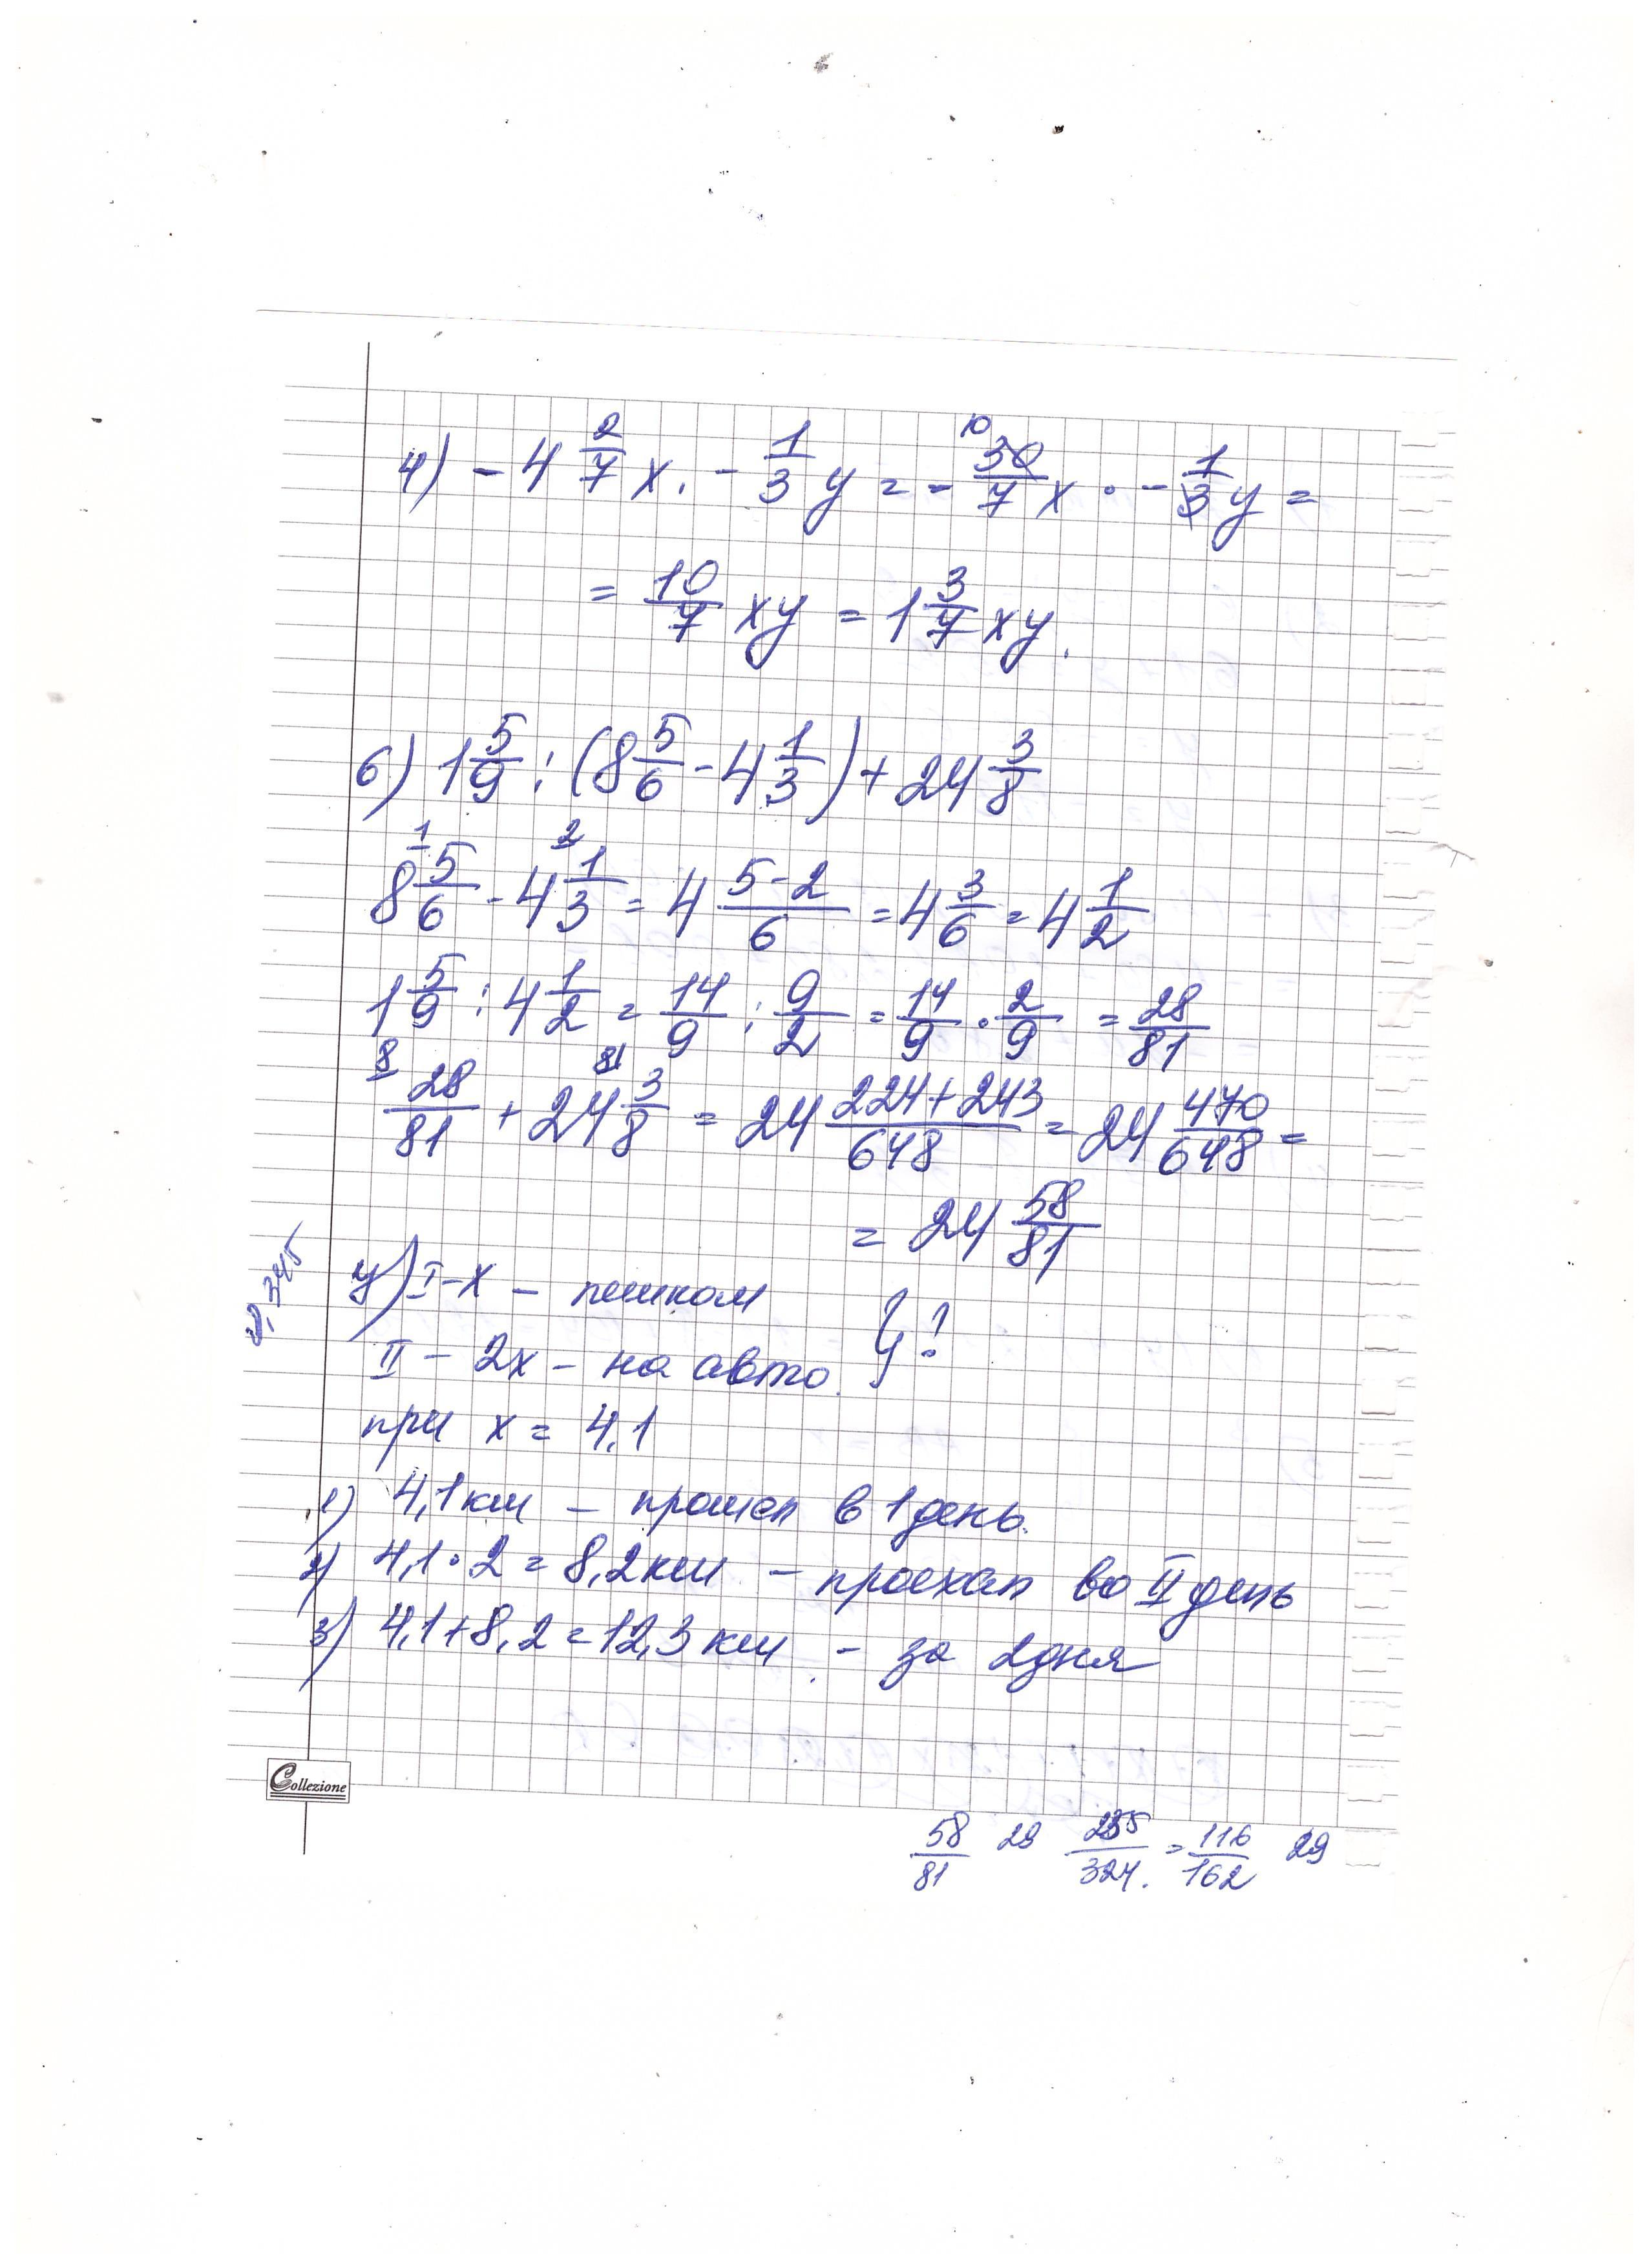 4) - 4 2/7 x · - 1/3 y = - 30/7 x · - 1/3 y =
10
= 10/7 xy = 1 3/7 xy.
6) 1 5/9 : (8 5/6 - 4 1/3) + 24 3/8
1 2
8 5/6 - 4 1/3 = 4 5-2/6 = 4 3/6 = 4 1/2
1 5/9 : 4 1/2 = 14/9 : 9/2 = 14/9 · 2/9 = 28/81
8 81
28/81 + 24 3/8 = 24 224+243/648 = 24 470/648 =
= 24 58/81
у) I - х - пешком
II - 2х - на авто. } ?
при х = 4,1
1) 4,1 км - прошел в 1 день.
2) 4,1 · 2 = 8,2 км - проехал во II день
3) 4,1 + 8,2 = 12,3 км - за 2 дня
Collezione
58/81 29 235/324. = 116/162 29